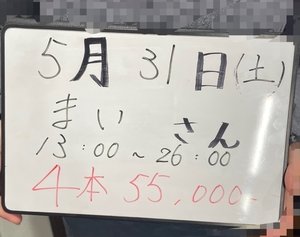 5月31日(土)
まい さん
13:00~26:00
4本 55,000-